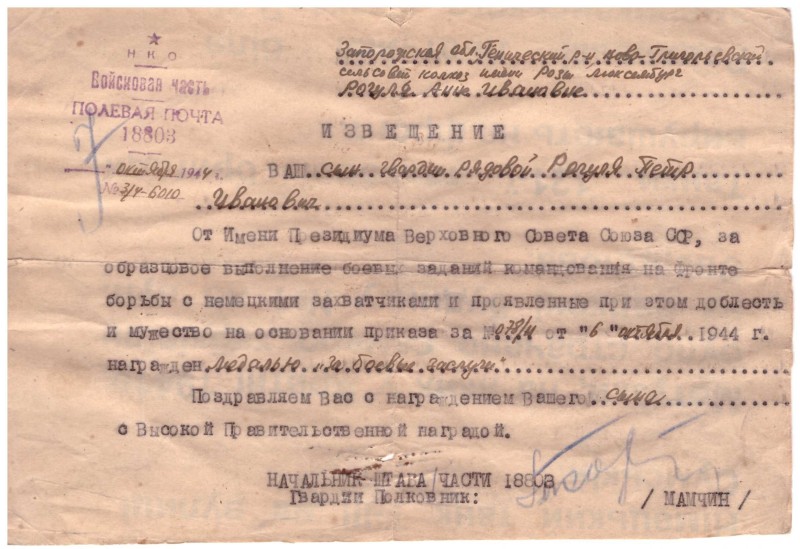 Н К О
Войсковая часть
ПОЛЕВАЯ ПОЧТА
18803
"  " октября 1944 г.
№ 3/4-6010
Запорожская обл. Генический р-н Ново-Григорьевский
сельсовет колхоз имени Розы Люксембург
Рогуля Анне Ивановне
ИЗВЕЩЕНИЕ
ВАШ сын гвардии рядовой Рогуля Петр
Иванович
От Имени Президиума Верховного Совета Союза ССР, за
образцовое выполнение боевых заданий командования на фронте
борьбы с немецкими захватчиками и проявленные при этом доблесть
и мужество на основании приказа за № 078/Н от "6" октября 1944 г.
награжден медалью "за боевые заслуги"
Поздравляем Вас с награждением Вашего сына
с Высокой Правительственной наградой.
НАЧАЛЬНИК ШТАБА ЧАСТИ 18803
Гвардии Полковник: / МАМЧИН /